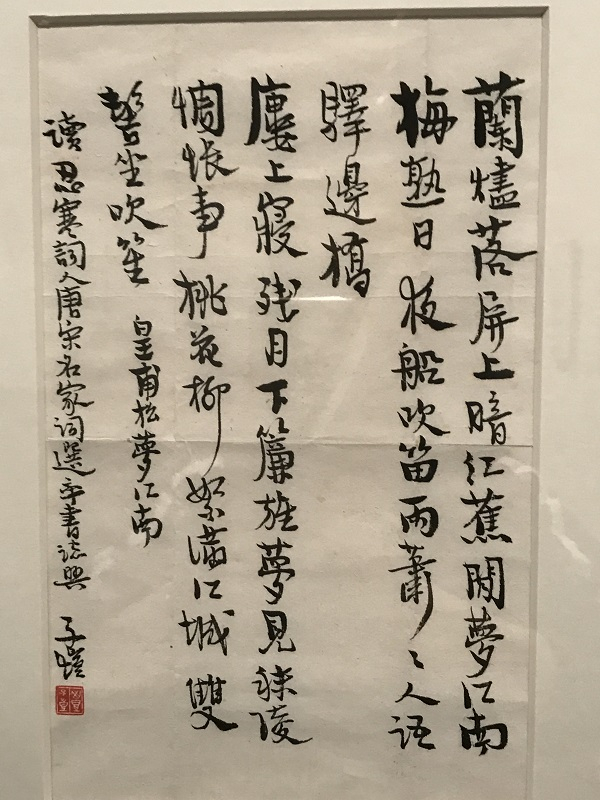 蘭燼落屏上暗紅蕉閒夢江南
梅熟日夜船吹笛雨蕭〻人語
驛邊橋
廔上寢残月下簾旌夢見秣陵
惆悵事桃花柳絮滿江城雙
髻坐吹笙 皇甫松夢江南
讀忍寒詞人唐宋名家詞選率書誌興 子愷